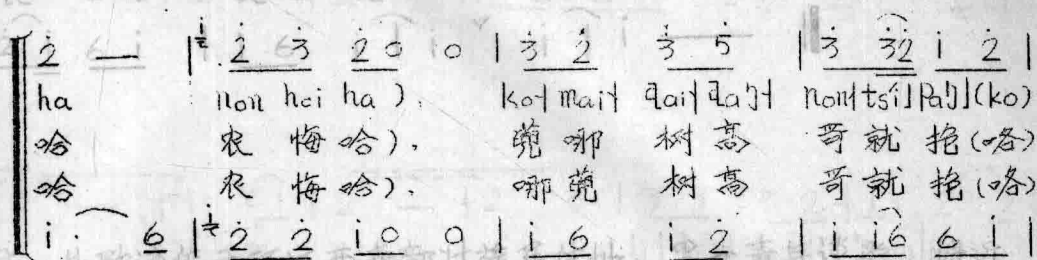 2̇ — | 2̇ 3̇ 2̇ 0 0 | 3̇ 2̇ 3̇ 5̇ | 3̇ 3̇2̇ i 2̇ |
ha non hei ha ). ko˧ mai˧ non˧ (ko)
哈 农 悔 哈). 蔸 哪 树 高 哥 就 (咯)
哈 农 悔 哈). 哪 蔸 树 高 哥 就 (咯)
i· 6 | 2̇ 2̇ i 0 0 | i 6 i 2̇ | i i6 6 i |